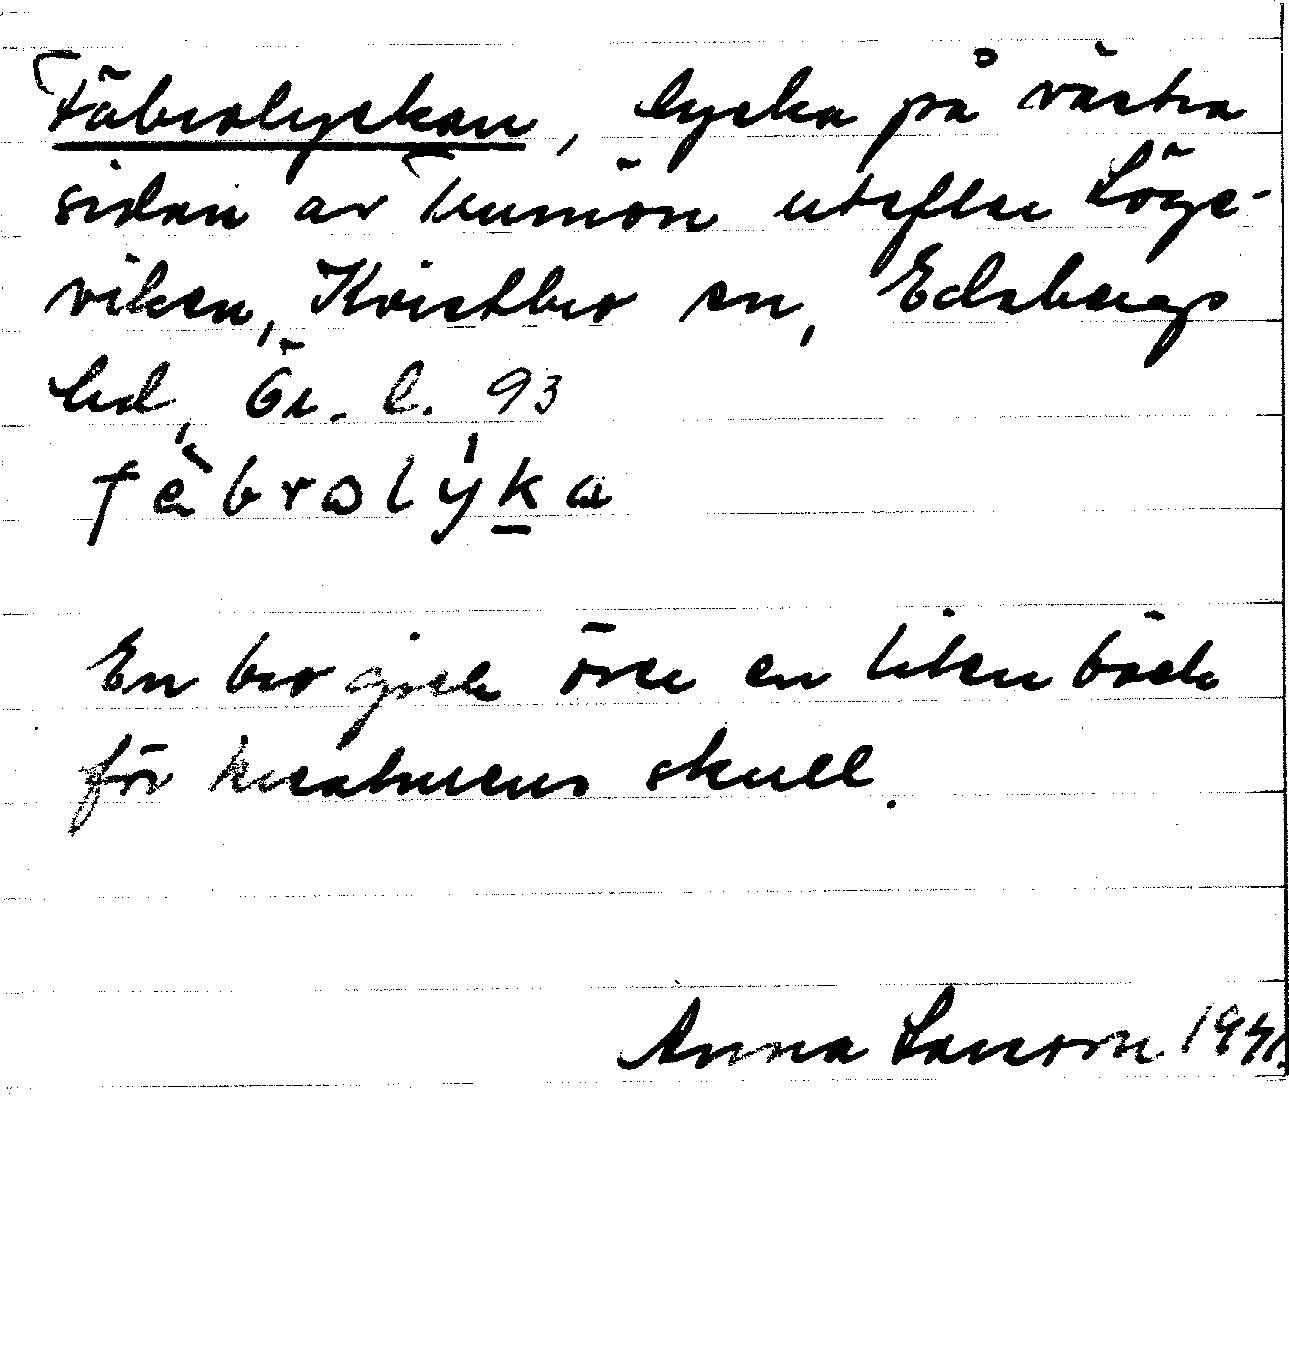 Fäbrolyckan, lycka på västra
sidan av Trumön utefter Löge-
viken, Kvistbro sn, Edsbergs
hd, Ör. l. 93
fäbrolýka
En bro gick över en liten bäck
för kreaturens skull.
Anna Larsson 1931.